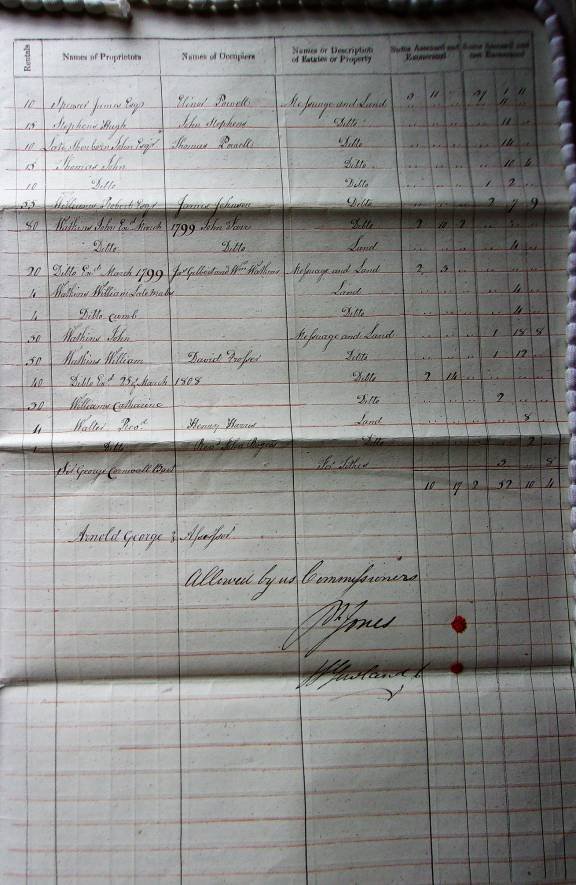 Rentals Names of Proprietors Names of Occupiers Names or Description of Estates or Property Sums Assessed and Exonerated Sums Assessed and not Exonerated
10 Spencer James Esqr Elinor Powell Messuage and Land
15 Stephens Hugh John Stephens Ditto
10 Late John Esqr Thomas Powell Ditto 14
15 Thomas John Ditto 10 4
10 Ditto Ditto 1 2
55 Williams Robert Esqr James Johnson Ditto 2 7 9
80 Watkins John Exd March 1799 John Ditto 2 10 2
Ditto Ditto Land 4
20 Ditto Exd March 1799 Jas Gilbert and Wm Watkins Messuage and Land 2 3
4 Watkins William Late Land 4
4 Ditto Ditto 4
50 Watkins John Messuage and Land 1 18 8
50 Watkins William David Prosser Ditto 1 12
40 Ditto Exd 25 of March 1808 Ditto 2 14
50 Williams Catharine Ditto 2
4 Walter Revd Henry Harris Land 8
Ditto Revd John Rogers Ditto 2
Sir George Cornwall Bart For Tithes 3 8
10 17 2 57 10 4
Arnold George } Assessor
Allowed by us Commissioners
Jones